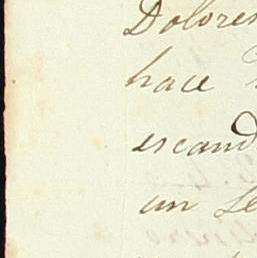 Dolores
hace
escand
un Se